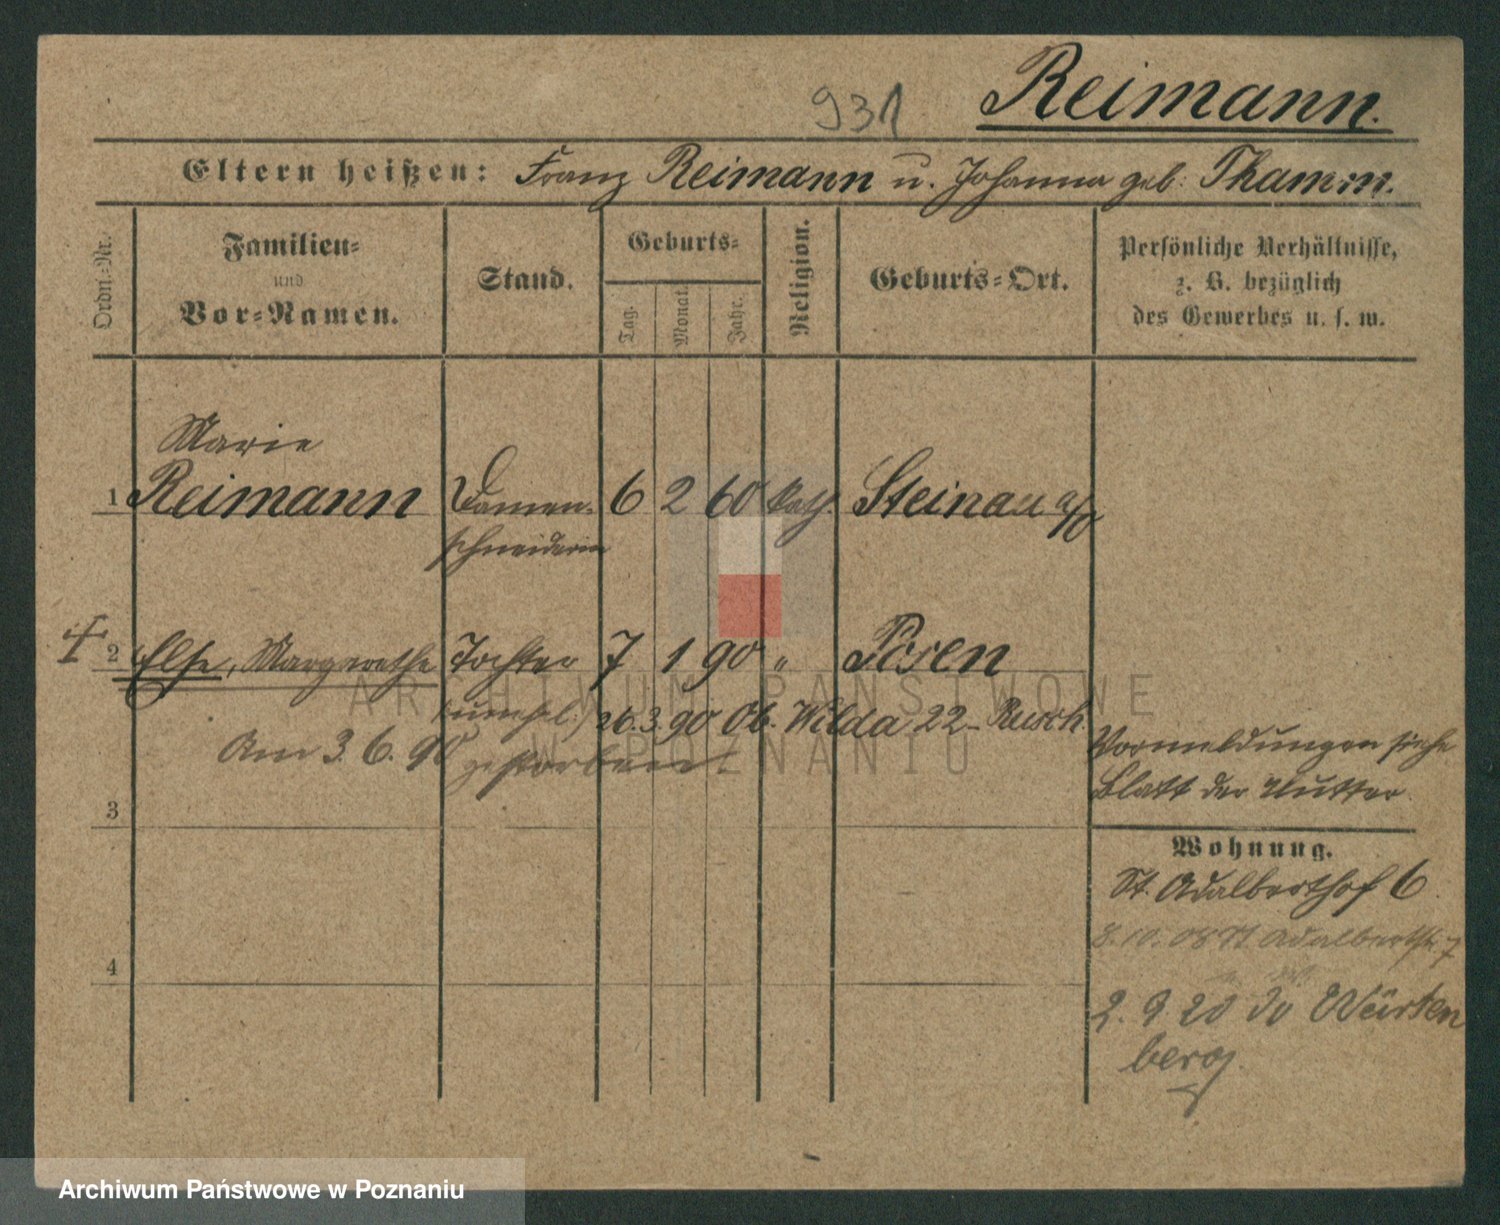 931 Reimann.
Eltern heißen: Franz Reimann u. Johanna geb. Thamm.
Ordn.-Nr.
Familien-
und
Vor-Namen.
Stand.
Geburts-
Tag.
Monat.
Jahr.
Religion.
Geburts-Ort.
Persönliche Verhältnisse,
z. B. bezüglich
des Gewerbes u. s. w.
Marie
1 Reimann Damen- 6 2 60 kath. Steinau a/O
schneiderin
2 Else, Margarethe Tochter 7 1 90 " Posen
26.3.90 Ob. Wilda 22 - Rusch.
Am 3.6.90 gestorben.
Vormeldungen siehe
Blatt der Mutter.
3
Wohnung.
St. Adalberthof 6
8.10.08 St. Adalbertstr. 7
4
2. 9 20 Würten
berg.
ARCHIWUM PAŃSTWOWE
W POZNANIU
Archiwum Państwowe w Poznaniu